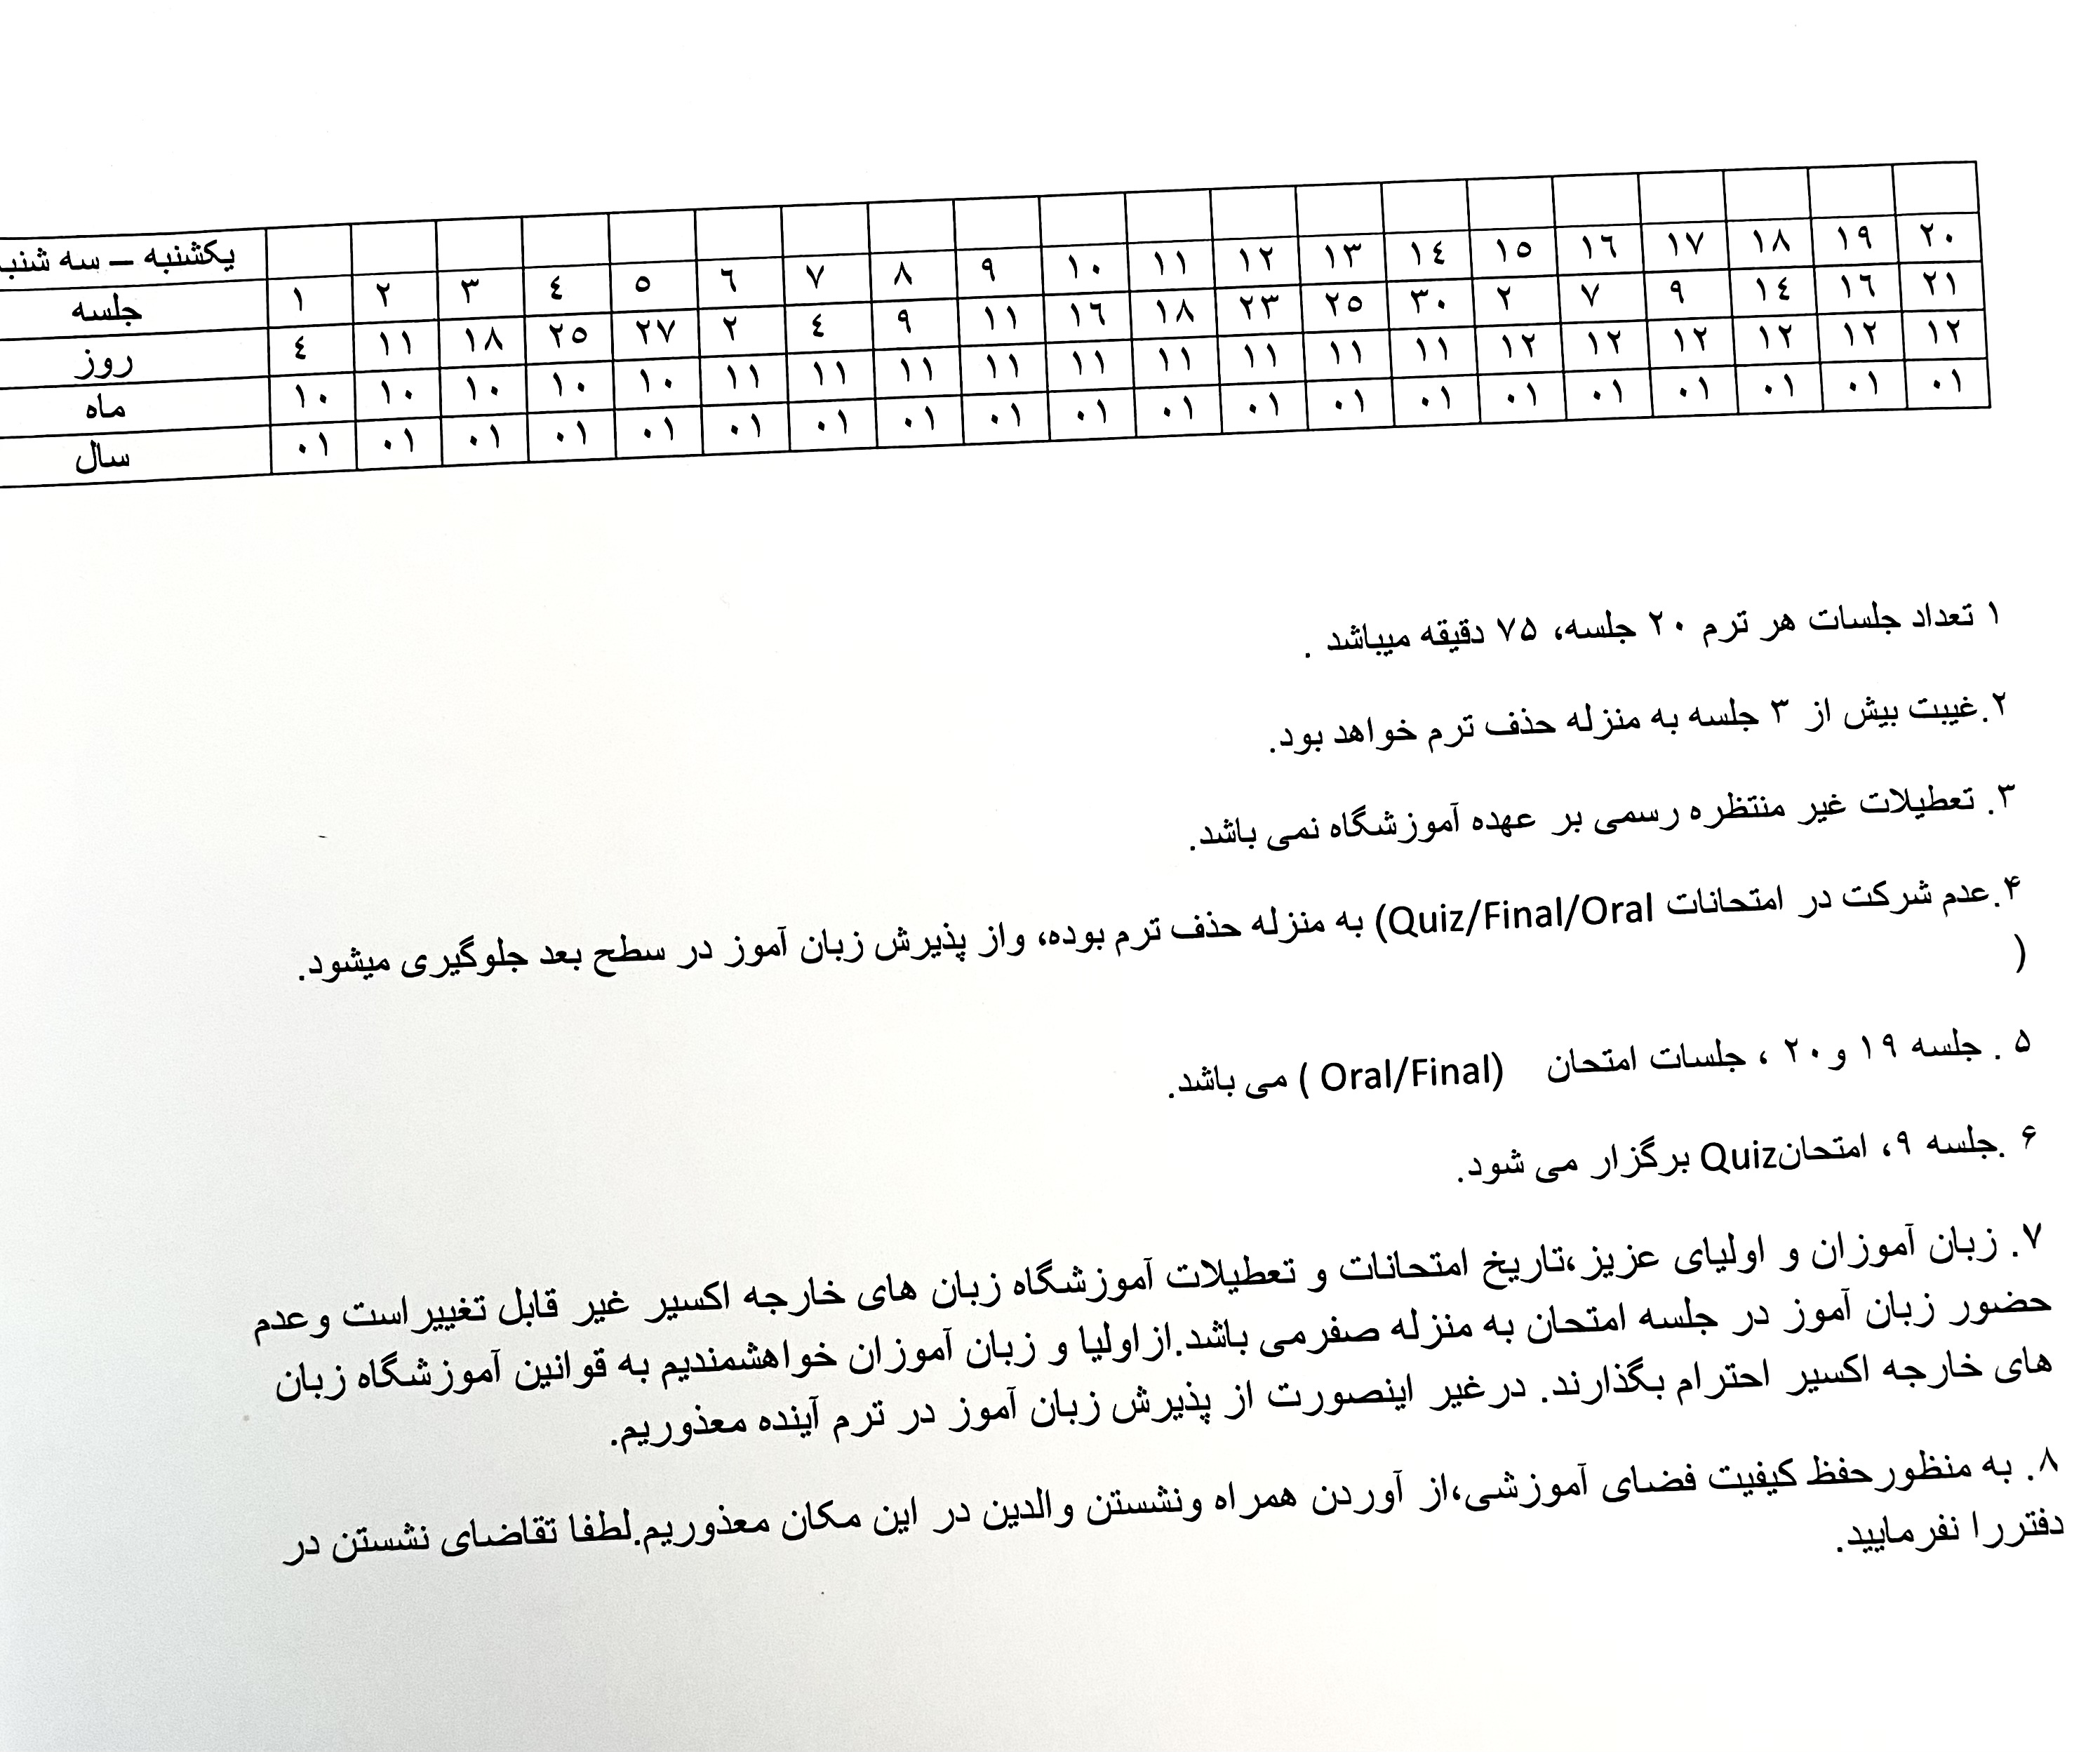 یکشنبه – سه شنب
جلسه ۱ ۲ ۳ ٤ ٥ ٦ ۷ ۸ ۹ ۱۰ ۱۱ ۱۲ ۱۳ ۱٤ ۱٥ ۱٦ ۱۷ ۱۸ ۱۹ ۲۰
روز ٤ ۱۱ ۱۸ ۲٥ ۲۷ ۲ ٤ ۹ ۱۱ ۱٦ ۱۸ ۲۳ ۲٥ ۳۰ ۲ ۷ ۹ ۱٤ ۱٦ ۲۱
ماه ۱۰ ۱۰ ۱۰ ۱۰ ۱۰ ۱۱ ۱۱ ۱۱ ۱۱ ۱۱ ۱۱ ۱۱ ۱۱ ۱۱ ۱۲ ۱۲ ۱۲ ۱۲ ۱۲ ۱۲
سال ۰۱ ۰۱ ۰۱ ۰۱ ۰۱ ۰۱ ۰۱ ۰۱ ۰۱ ۰۱ ۰۱ ۰۱ ۰۱ ۰۱ ۰۱ ۰۱ ۰۱ ۰۱ ۰۱ ۰۱
۱ تعداد جلسات هر ترم ۲۰ جلسه، ۷۵ دقیقه میباشد .
۲.غیبت بیش از ۳ جلسه به منزله حذف ترم خواهد بود.
۳. تعطیلات غیر منتظره رسمی بر عهده آموزشگاه نمی باشد.
۴.عدم شرکت در امتحانات Quiz/Final/Oral) به منزله حذف ترم بوده، واز پذیرش زبان آموز در سطح بعد جلوگیری میشود.
(
۵ . جلسه ۱۹ و۲۰ ، جلسات امتحان (Oral/Final ) می باشد.
۶ .جلسه ۹، امتحانQuiz برگزار می شود.
۷. زبان آموزان و اولیای عزیز،تاریخ امتحانات و تعطیلات آموزشگاه زبان های خارجه اکسیر غیر قابل تغییراست وعدم
حضور زبان آموز در جلسه امتحان به منزله صفرمی باشد.ازاولیا و زبان آموزان خواهشمندیم به قوانین آموزشگاه زبان
های خارجه اکسیر احترام بگذارند. درغیر اینصورت از پذیرش زبان آموز در ترم آینده معذوریم.
۸. به منظورحفظ کیفیت فضای آموزشی،از آوردن همراه ونشستن والدین در این مکان معذوریم.لطفا تقاضای نشستن در
دفتررا نفرمایید.